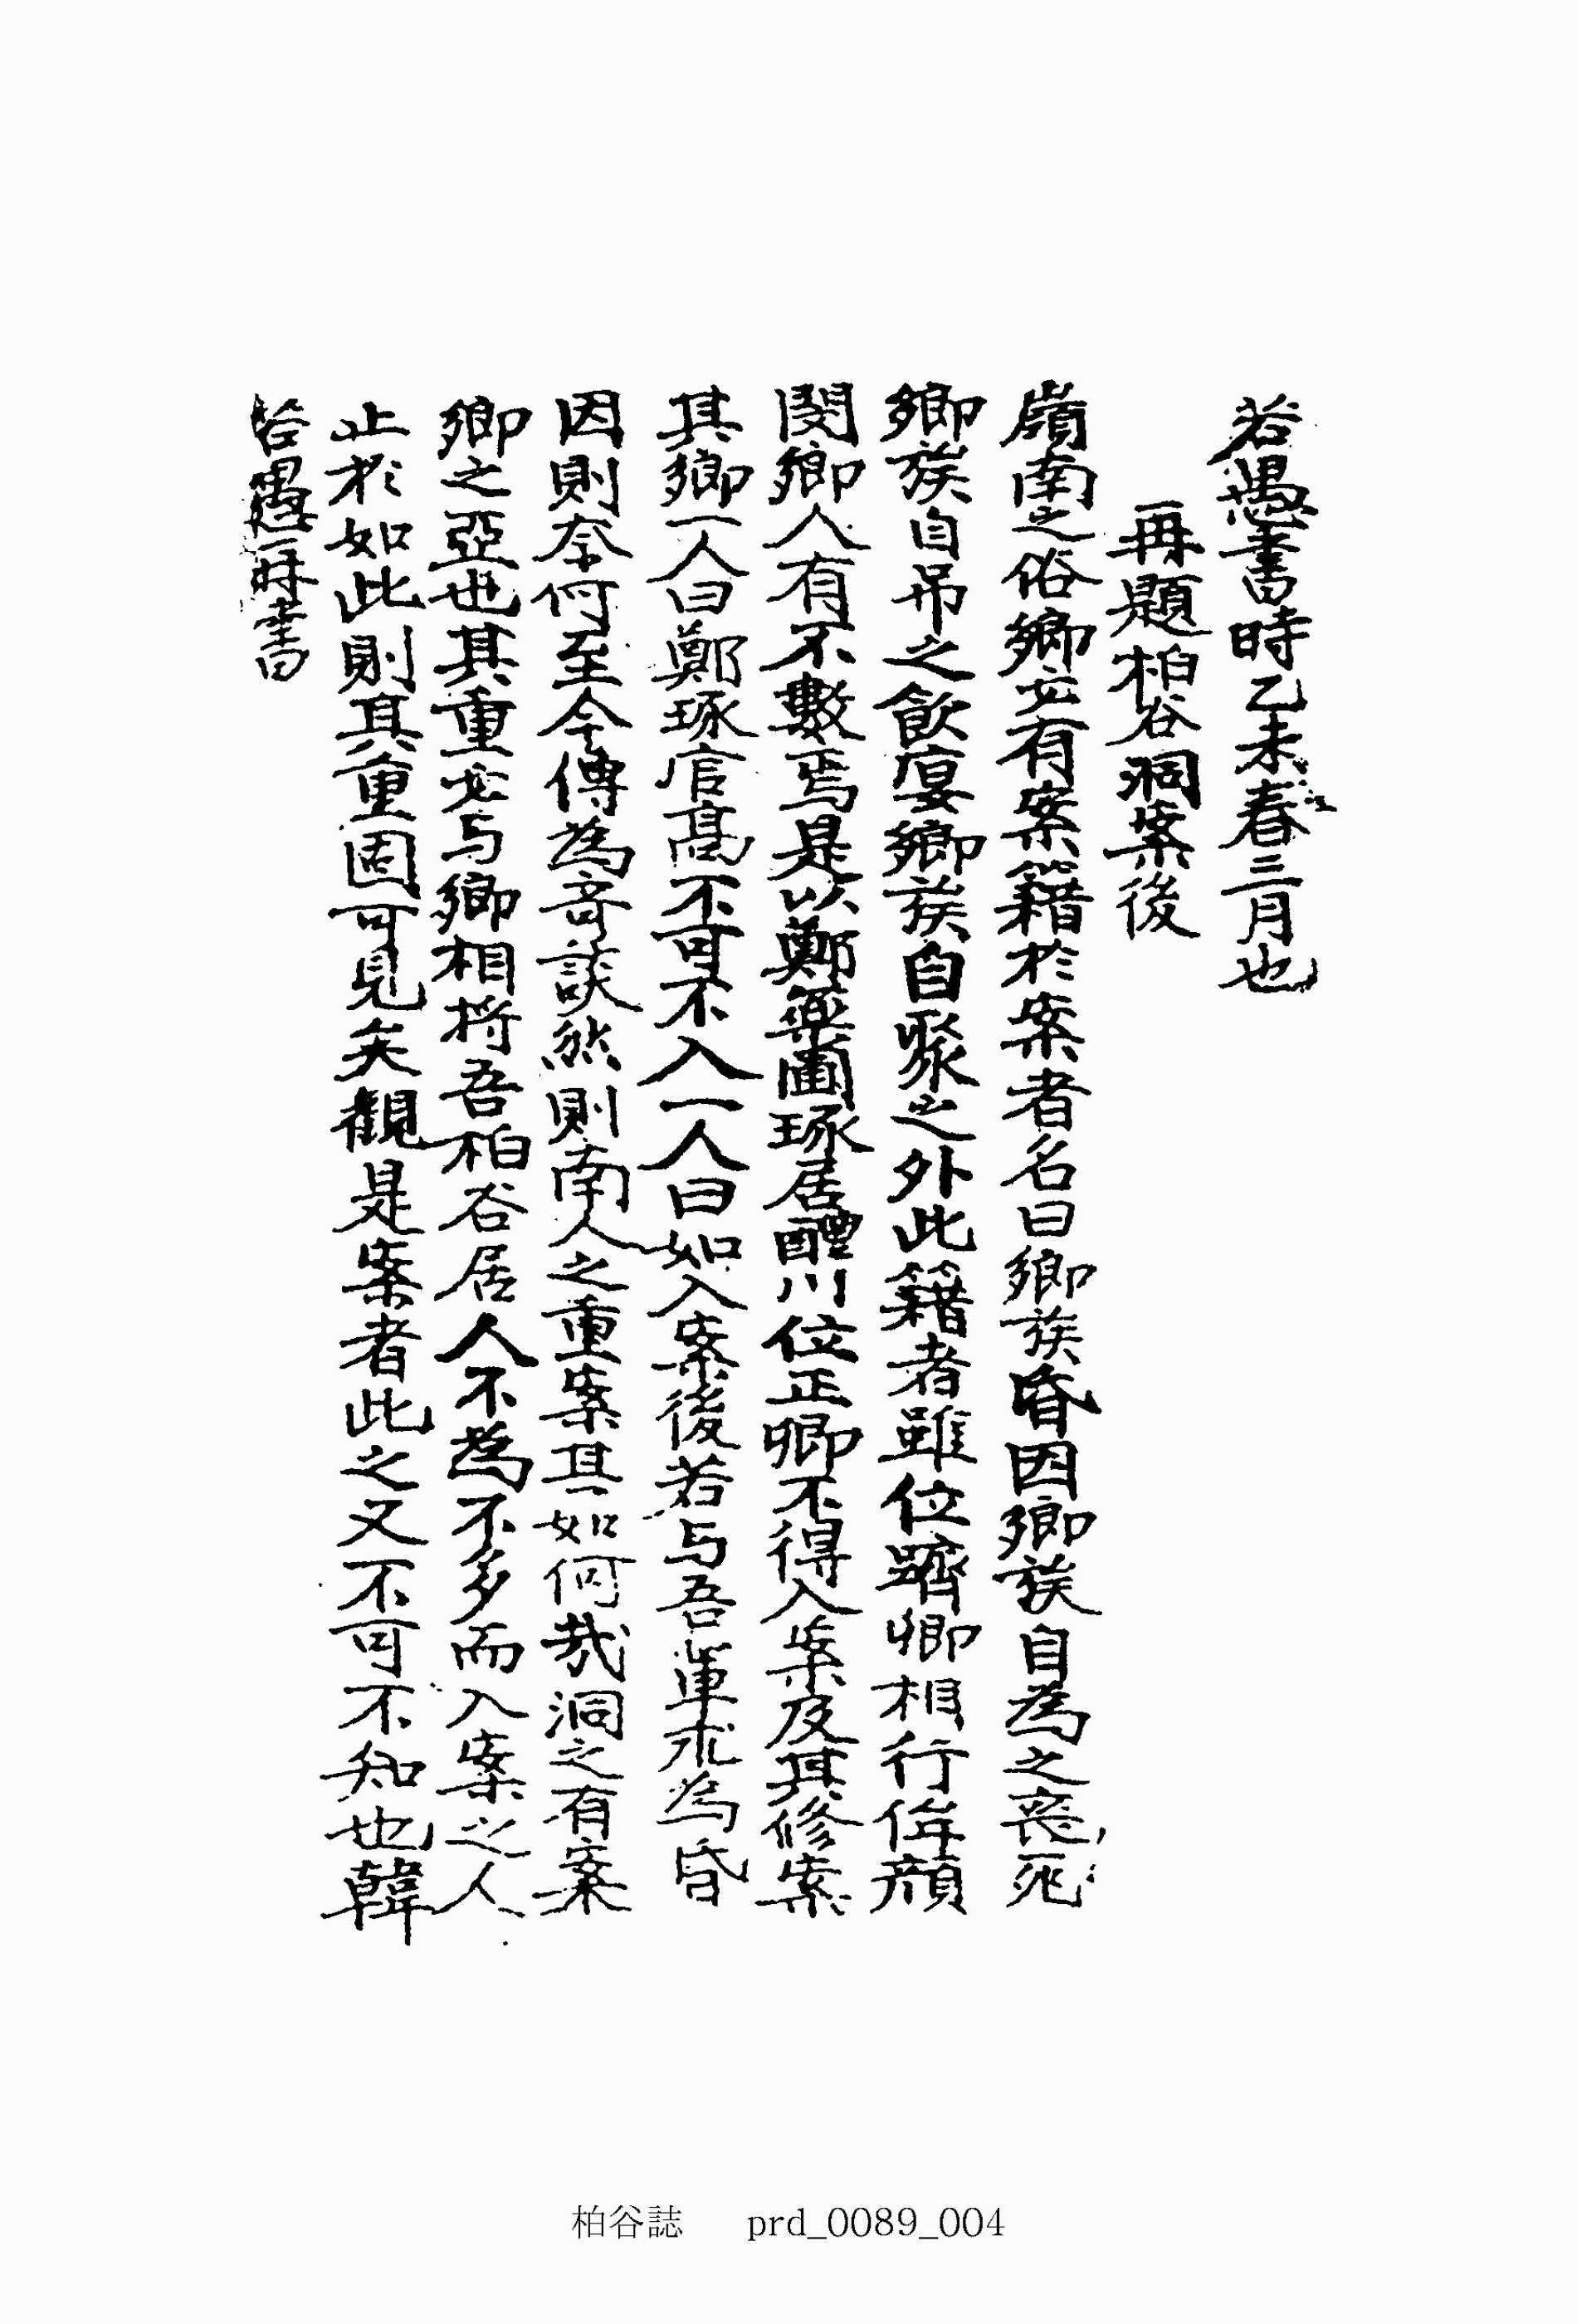 若愚書時乙未春三月也
再題柏谷洞案後
嶺南之俗鄉必有案籍於案者名曰鄉族昏因鄉族自為之喪死
鄉族自吊之飲宴鄉族自聚之外此籍者雖位躋卿相行侔顔
閔鄉人有不數焉是以鄭藥圃琢居醴川位正卿不得入案及其修案
其鄉一人曰鄭琢官高不可不入一人曰如入案後若与吾軰求為昏
因則奈何至今傳為奇談然則南人之重案其如何哉洞之有案
鄉之亞也其重必与鄉相將吾柏谷居人不為不多而入案之人
止於如此則其重固可見矣觀是案者此之又不可不知也韓
若愚再書
柏谷誌 prd_0089_004